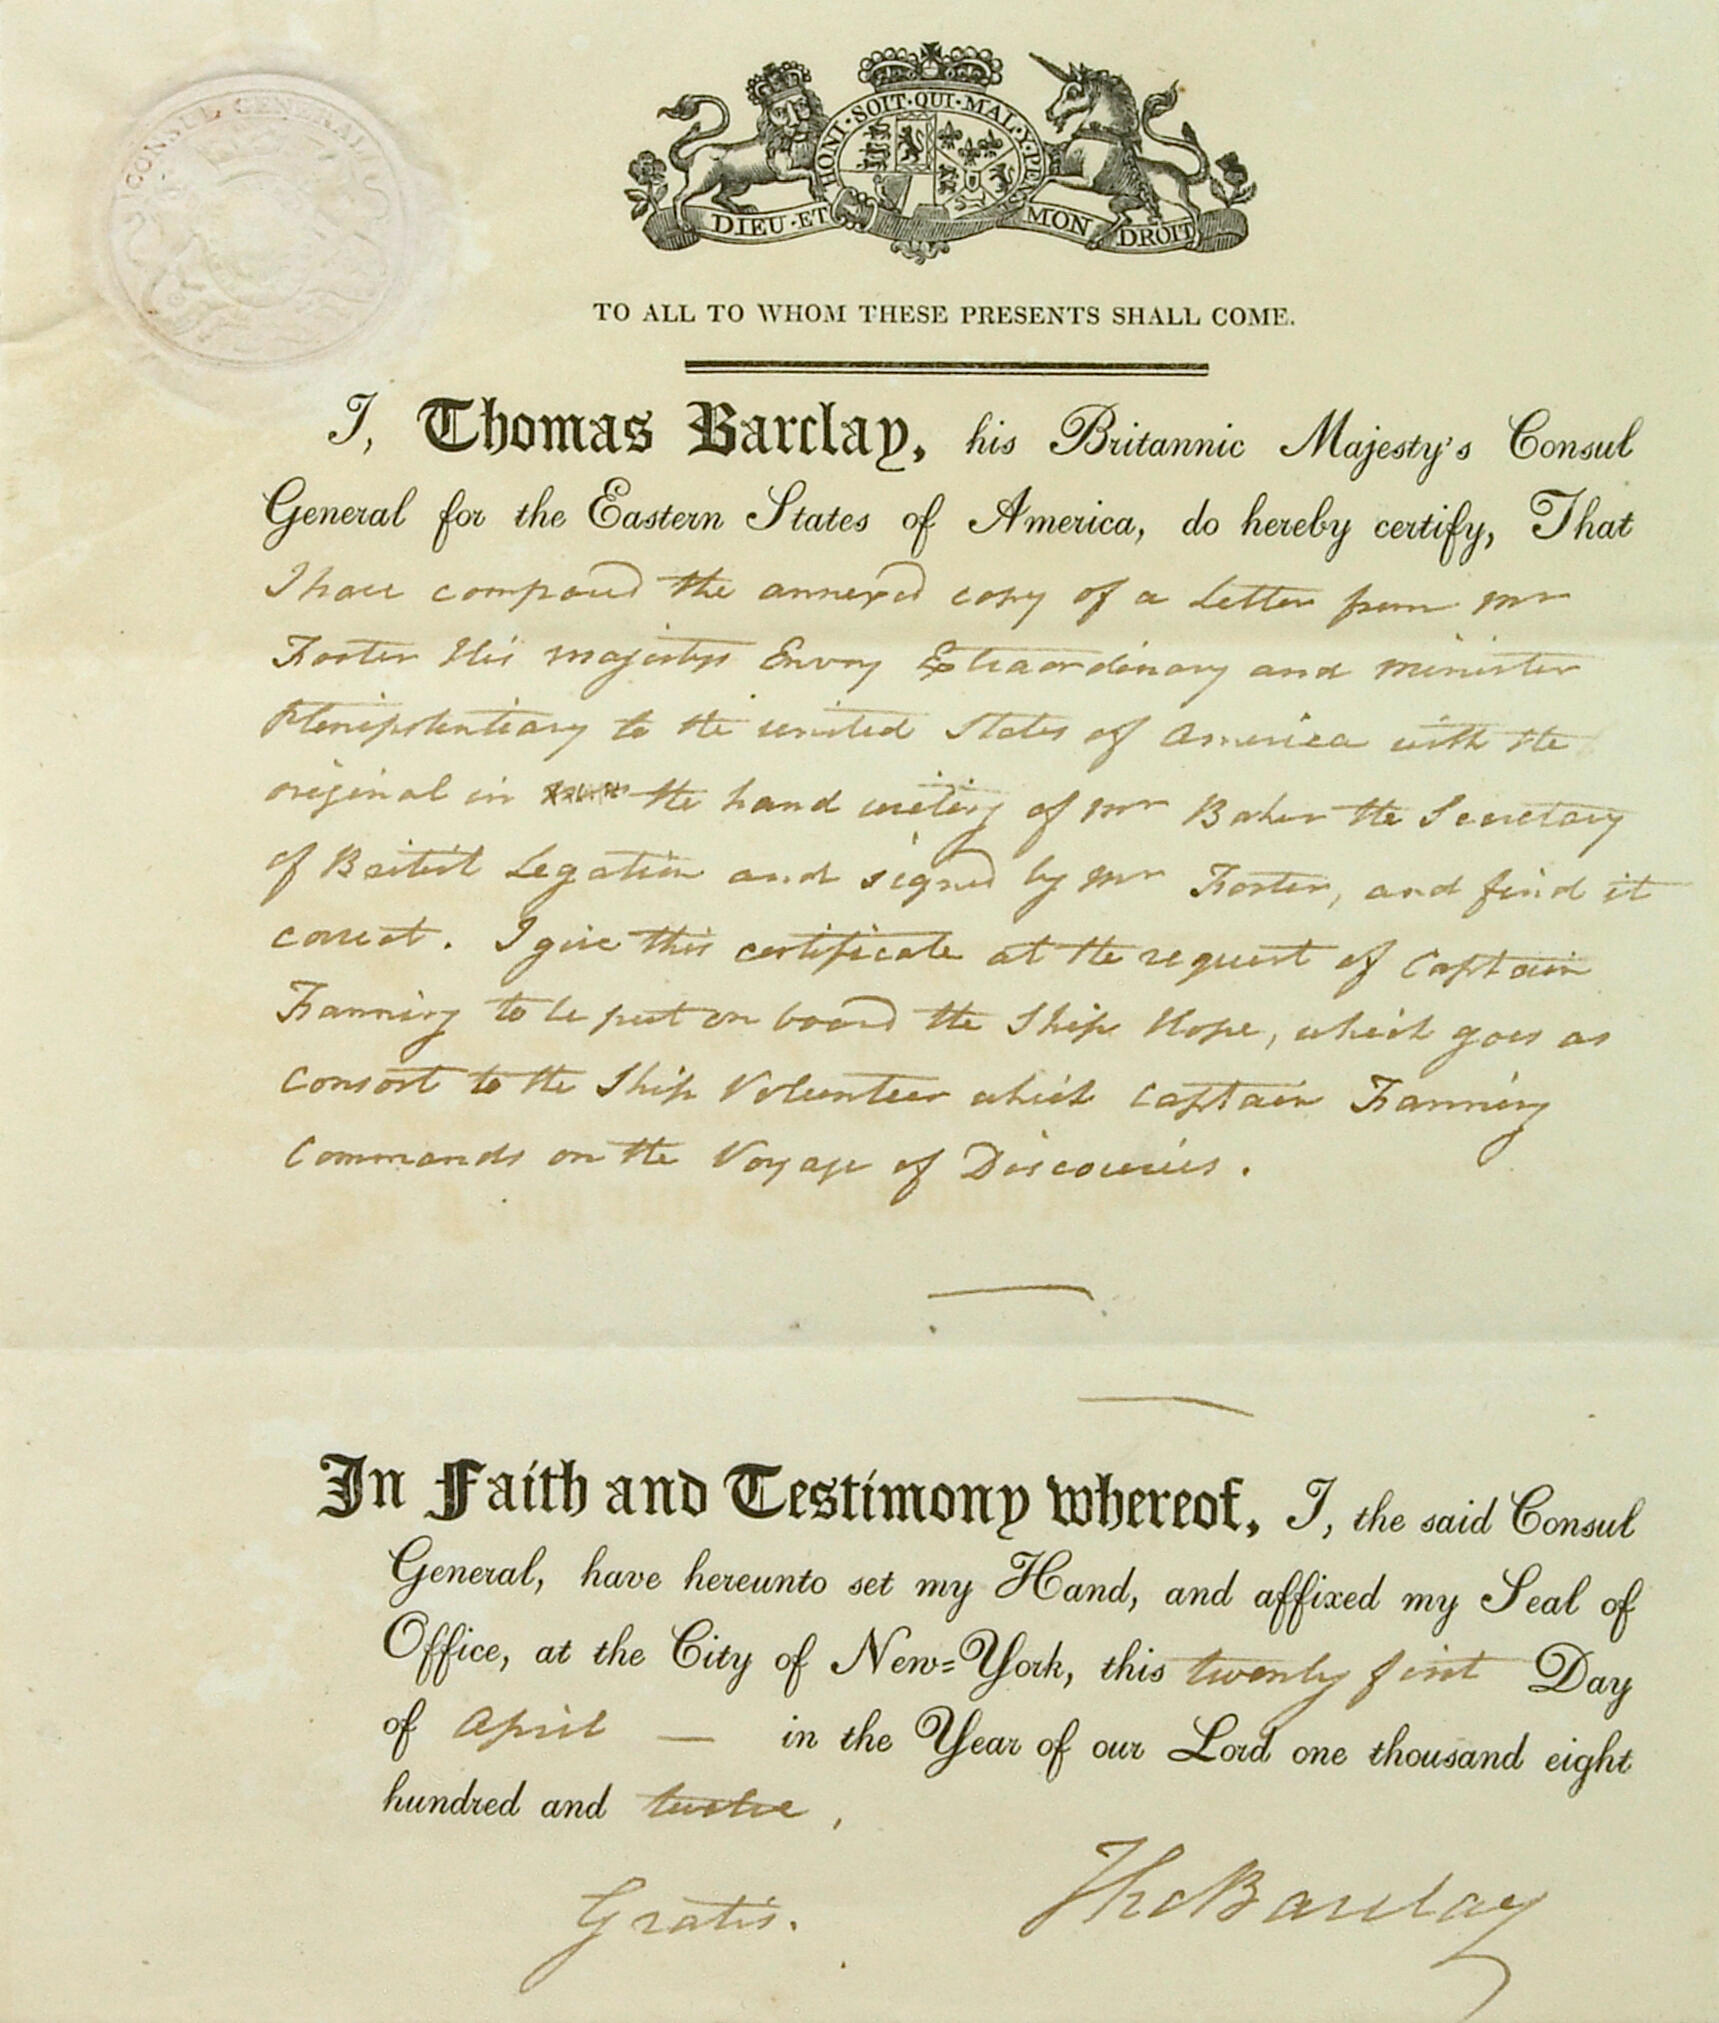 CONSUL GENERAL
HONI·SOIT·QUI·MAL·Y·PEN
DIEU·ET MON DROIT
TO ALL TO WHOM THESE PRESENTS SHALL COME.
I, Thomas Barclay, his Britannic Majesty's Consul
General for the Eastern States of America, do hereby certify, That
I have compared the annexed copy of a Letter from Mr
Foster His Majestys Envoy Extraordinary and Minister
Plenipotentiary to the United States of America with the
original in the hand writing of Mr Baker the Secretary
of British Legation and signed by Mr Foster, and find it
correct. I give this certificate at the request of Captain
Fanning to be put on board the Ship Hope, which goes as
Consort to the Ship Volunteer which Captain Fanning
Commands on the Voyage of Discoveries.
In Faith and Testimony whereof, I, the said Consul
General, have hereunto set my Hand, and affixed my Seal of
Office, at the City of New=York, this twenty first Day
of April — in the Year of our Lord one thousand eight
hundred and twelve,
Gratis. Tho Barclay